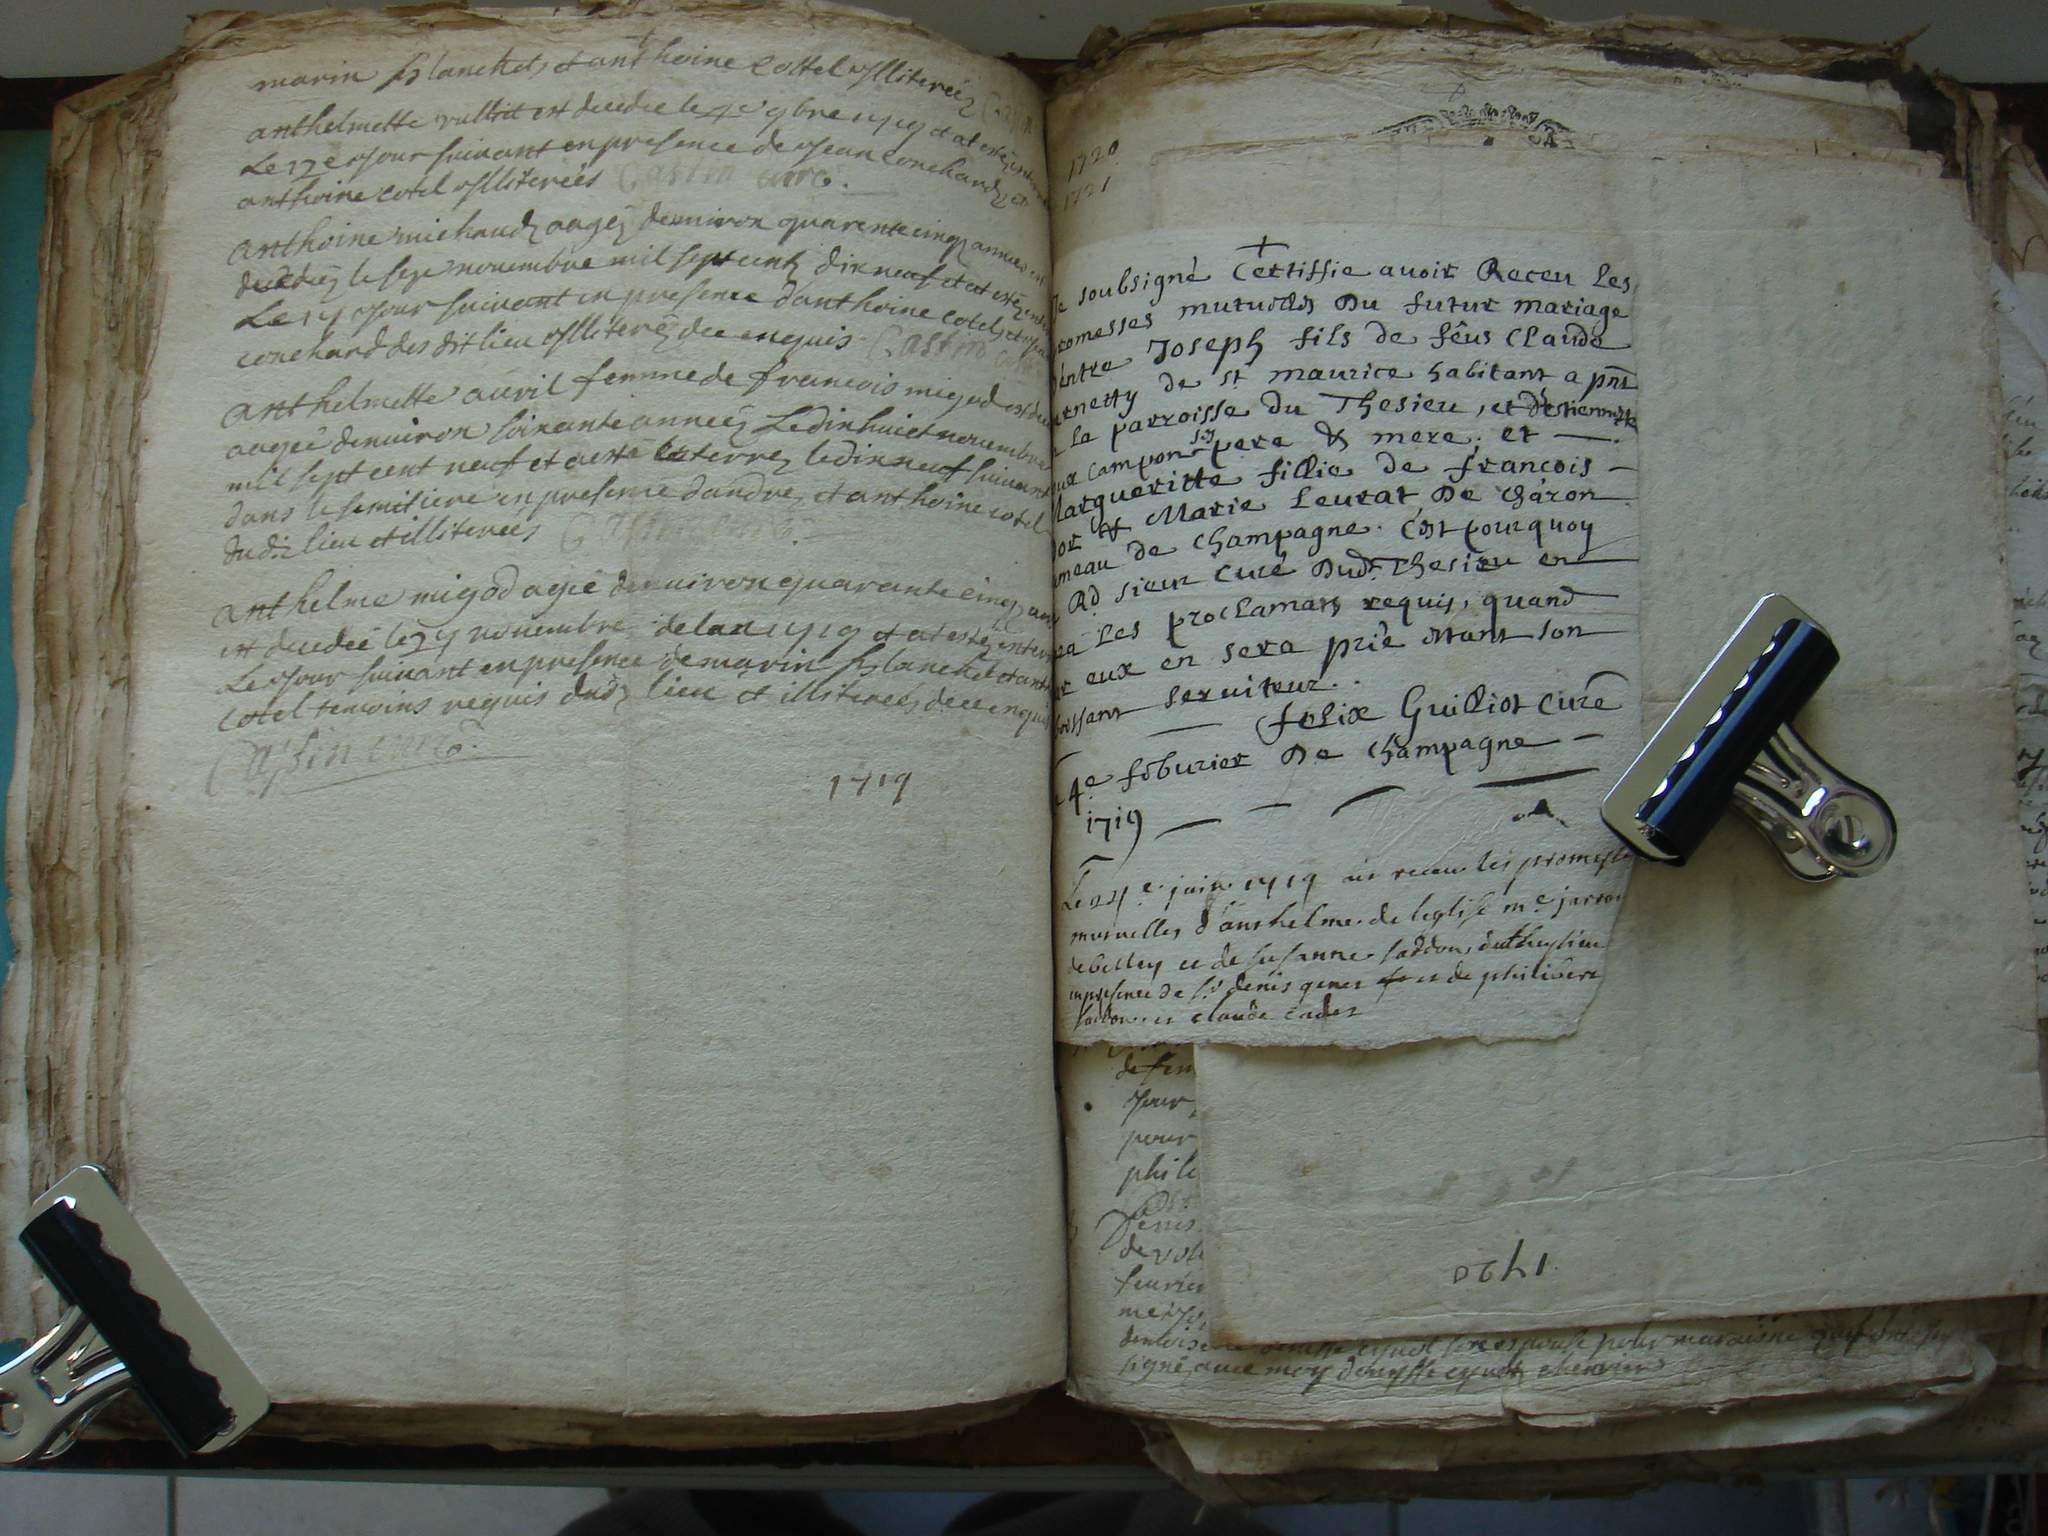 marin blanchet, et anthoine cottel illiterés
anthelmette vullict est decedee le 9bre 1719 et at esté
Le 17e jour suivant en presence de jean conchard, et
anthoine cotel illiterés Castin curé.
anthoine michaud aagé denuiron quarente cinq années
decedez le seze nouembre mil sept centz dix neuf et at esté
Le 17 jour suivant en presence d'anthoine cotel, et
conchard des dit lieu illiteré de ce enquis Castin
anthelmette auril femme de francois migod est
aagée denuiron soixante années Le dixhuict nouembre
mil sept cent neuf et a esté enterré le dixneuf suivant
dans le semitiere en presence d'andre, et anthoine cotel
dudit lieu et illiterées Castin curé.
anthelme migod agée denuiron quarante cinq ans
est decedée le 27 nouembre de lan 1719 et at esté
Le jour suivant en presence de marin blanchet et
Cotel temoins requis dud lieu et illiterés de ce enquis
Castin curé.
1719
1720
1721
Je soubsigné Certiffie auoir Receu Les
romesses mutuelles Du futur mariage
entre Joseph fils de fêus Claude
rnetty de st maurice habitant a pnt
La parroisse du Thesieu, et d'estiennette
campon ses pere & mere; et
Margueritte fillie de francois
& Marie Leurat De Charon
meau de Champagne. C'est pourquoy
Rd sieur Curé Dudt Thesieu en
ra Les proclamats requis, quand
eux en sera prié étant son
beissant seruiteur.
felix Guilliot Curé
4e féburier De Champagne
1719
Le 24e juin 1719 ais receu les promess
mutuelles d'anthelme de leglise me jarron
de belley et de susanne faddou, du theysieu
en presence de sr denis genet et de philibert
faddou et claude Cadet
de fem
jour,
pour
phile
Denis
de vol
feurier
me
1720
signé auec moy